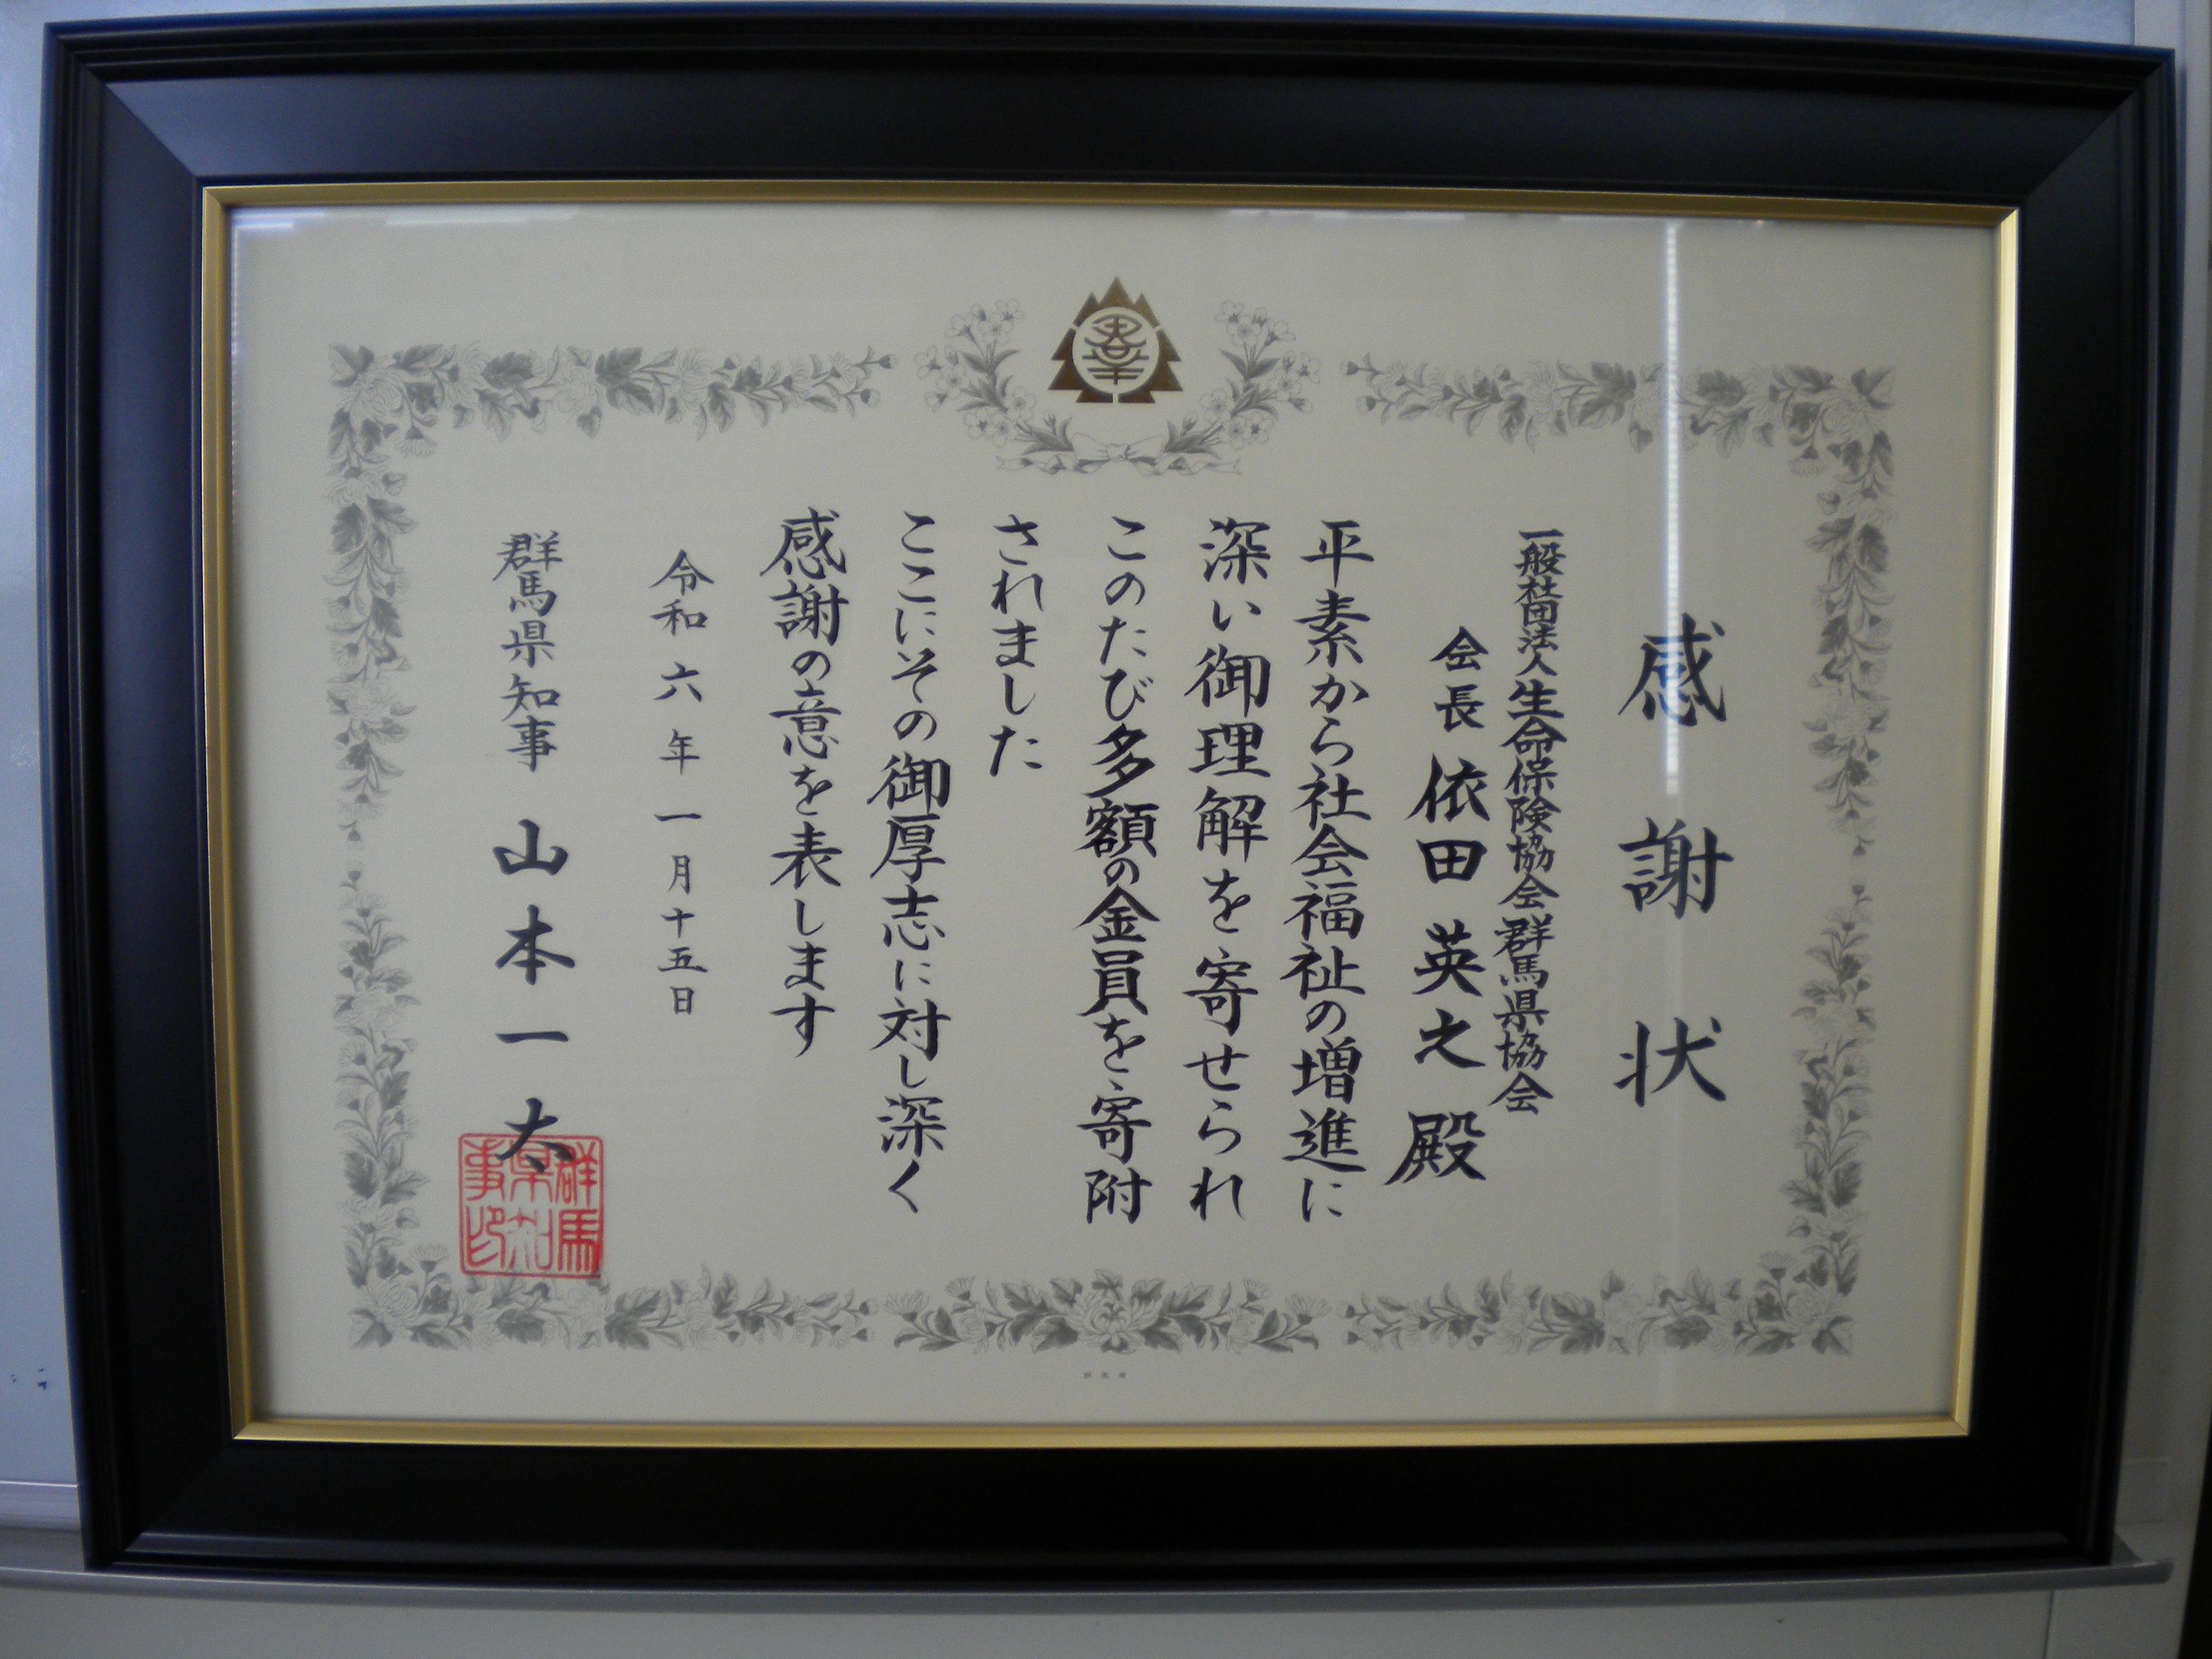 感謝状
一般社団法人生命保険協会群馬県協会
会長 依田英之殿
平素から社会福祉の増進に
深い御理解を寄せられ
このたび多額の金員を寄附
されました
ここにその御厚志に対し深く
感謝の意を表します
令和六年一月十五日
群馬県知事 山本一太
群馬県知事印